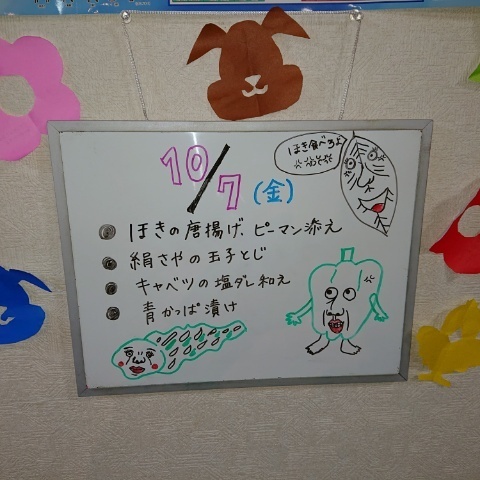 10/7(金)
ほき食べろよ
ほきの唐揚げ、ピーマン添え
絹さやの玉子とじ
キャベツの塩ダレ和え
青かっぱ漬け